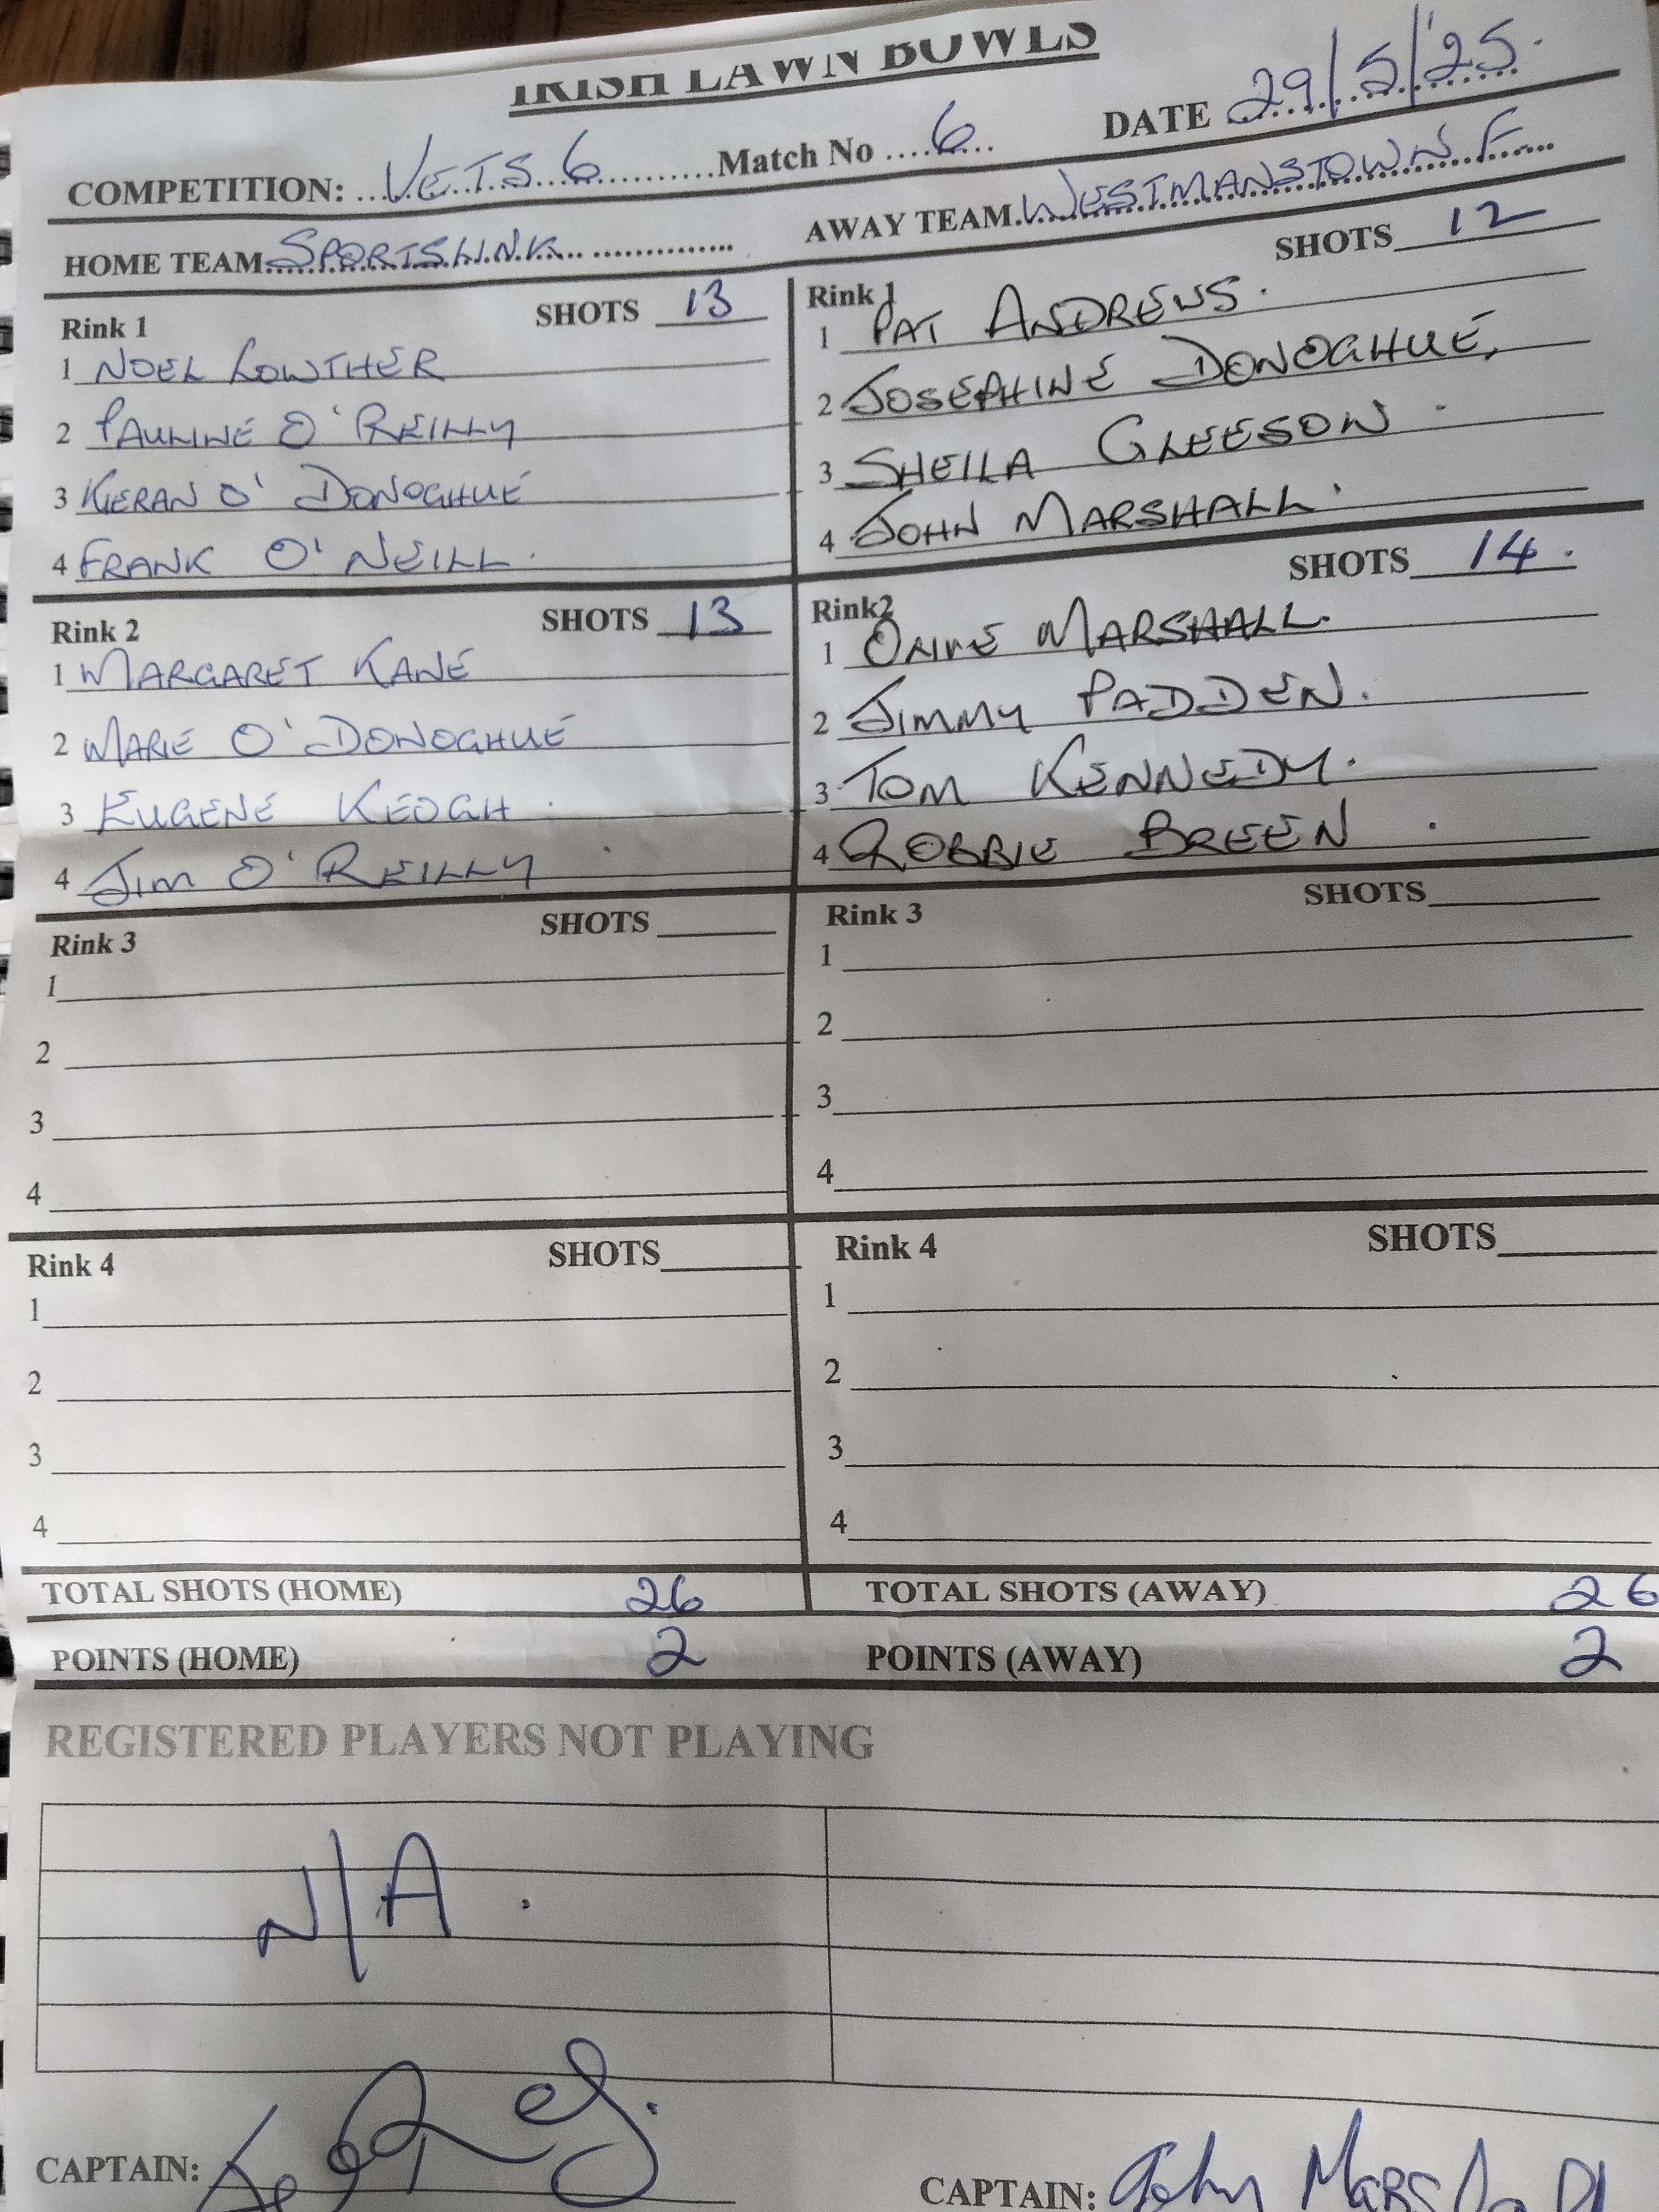 IRISH LAWN BOWLS
COMPETITION: ...VETS 6...Match No ....6.... DATE 29/5/'25.
HOME TEAM SPORTSLINK AWAY TEAM WESTMANSTOWN F
Rink 1 SHOTS 13
1 NOEL LOWTHER
2 PAULINE O'REILLY
3 KIERAN O'DONOGHUE
4 FRANK O'NEILL.
Rink 1 SHOTS 12
1 PAT ANDREWS.
2 JOSEPHINE DONOGHUE,
3 SHEILA GLEESON.
4 JOHN MARSHALL.
Rink 2 SHOTS 13
1 MARGARET KANE
2 MARIE O'DONOGHUE
3 EUGENE KEOGH.
4 JIM O'REILLY.
Rink2 SHOTS 14.
1 OLIVE MARSHALL.
2 JIMMY PADDEN.
3 TOM KENNEDY.
4 ROBBIE BREEN.
Rink 3 SHOTS
1
2
3
4
Rink 3 SHOTS
1
2
3
4
Rink 4 SHOTS
1
2
3
4
Rink 4 SHOTS
1
2
3
4
TOTAL SHOTS (HOME) 26 TOTAL SHOTS (AWAY) 26
POINTS (HOME) 2 POINTS (AWAY) 2
REGISTERED PLAYERS NOT PLAYING
N/A.
CAPTAIN: CAPTAIN: John Marshall